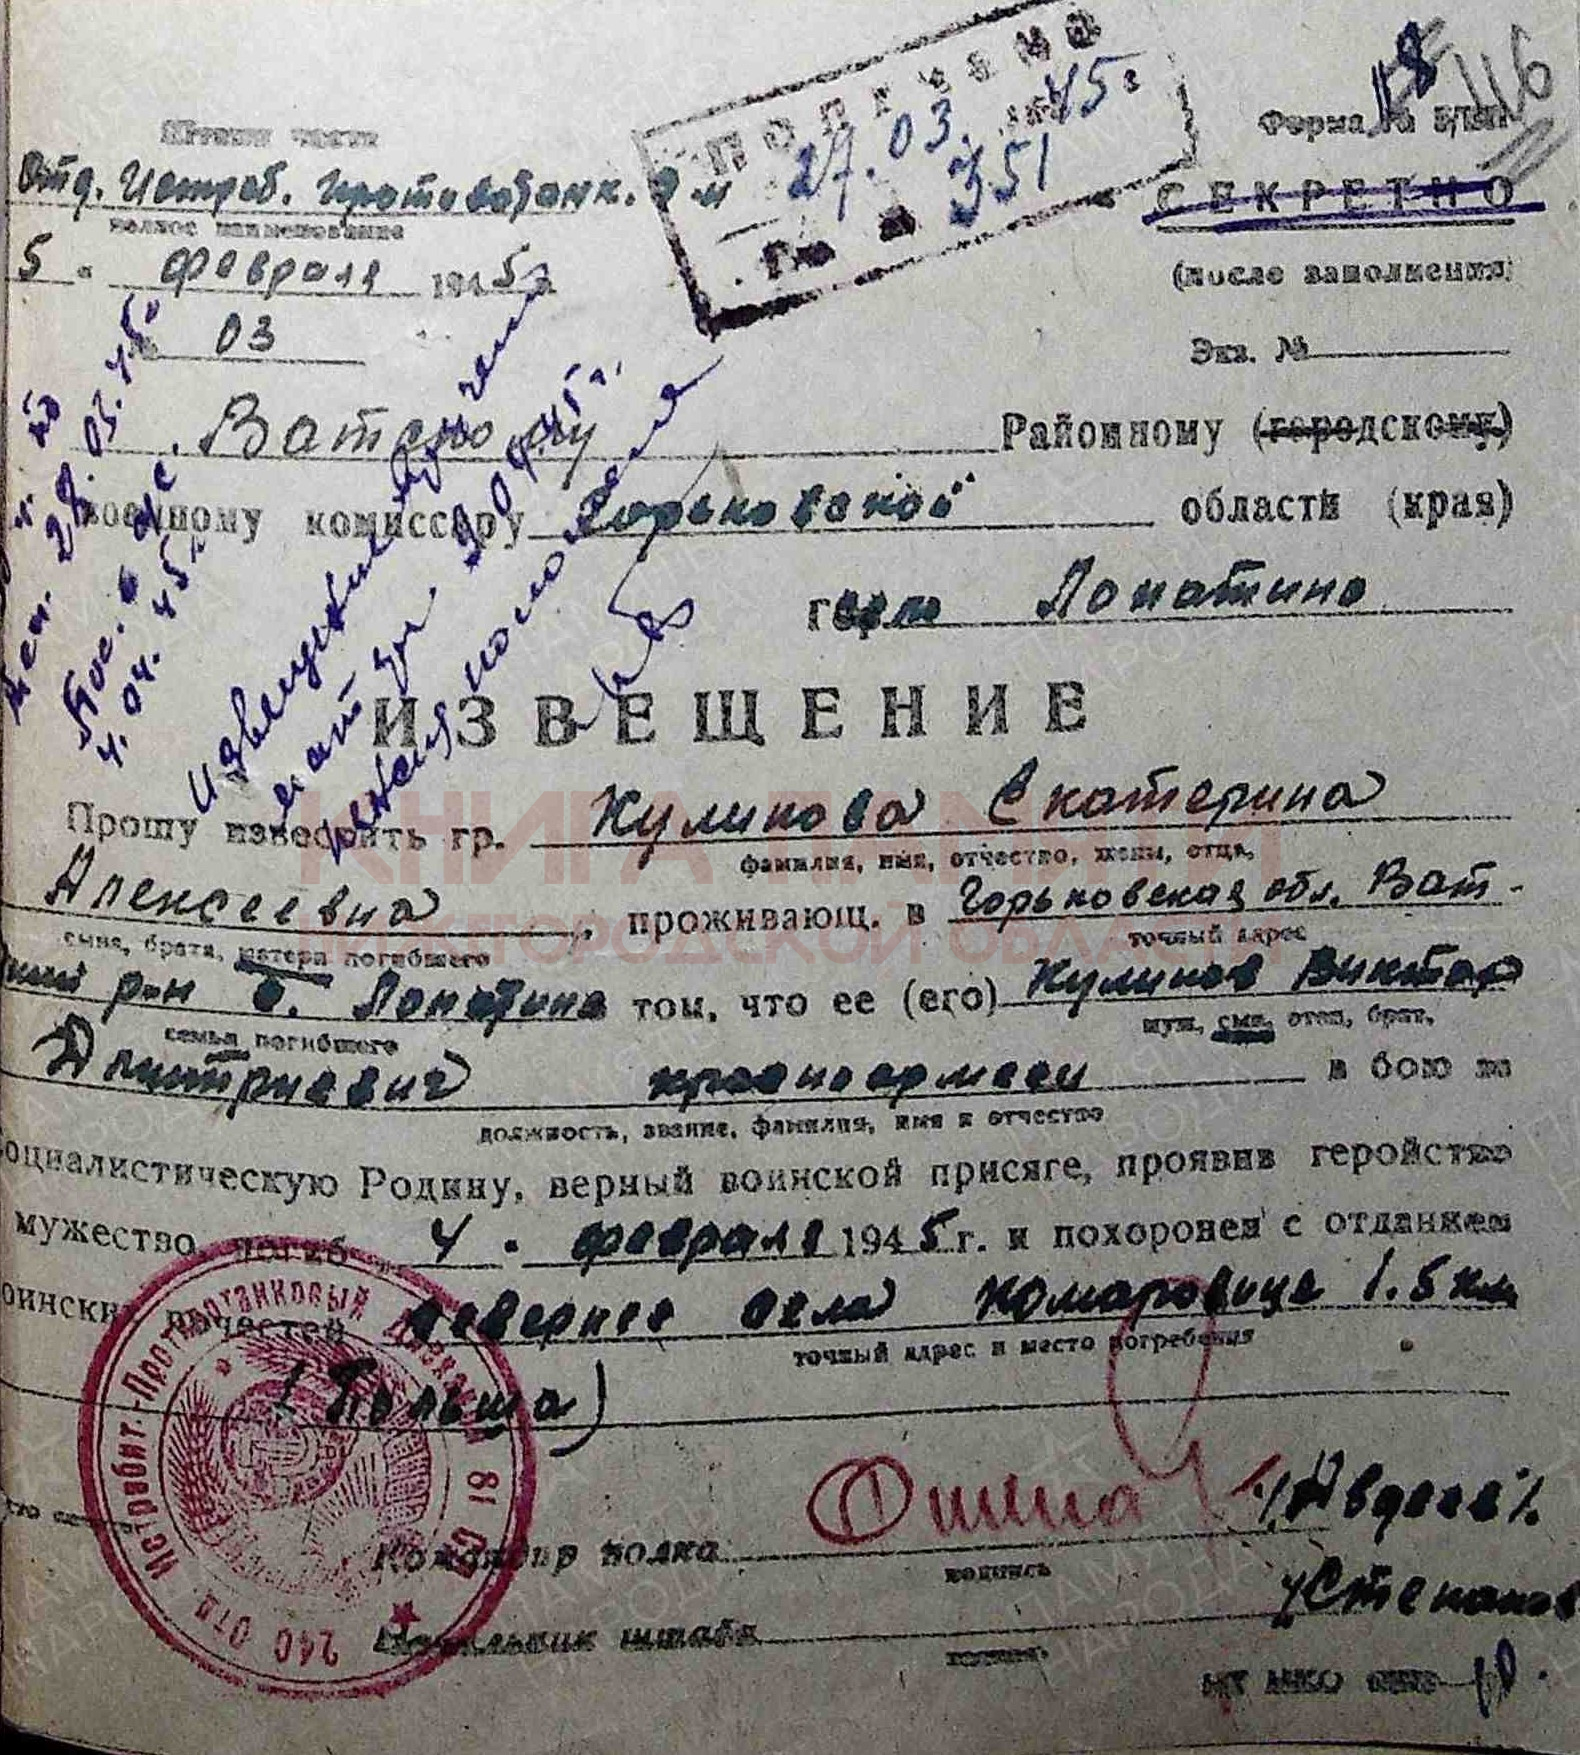 118
116
Получено
27.03.1945г
Вх № 351
Штамп части
Форма № 2/БП
Отд. Истреб. Противотанк. Д-н
СЕКРЕТНО
полное наименование
(после заполнения)
5 " февраля 1945 г.
03
Экз. №
Ватскому Районному (городскому)
военному комиссару Горьковской области (края)
село Лопатино
28.03.45г
4.04.45г
Извещение вручено
мать 9.04.45г.
ИЗВЕЩЕНИЕ
Прошу известить гр. Куликова Екатерина
фамилия, имя, отчество, жены, отца,
Алексеевна, проживающ. в Горьковская обл. Ват-
сына, брата, матери погибшего
точный адрес
ский р-н с. Лопатино том, что ее (его) Куликов Виктор
семья погибшего
муж, сын, отец, брат,
Дмитриевич красноармеец в бою за
должность, звание, фамилия, имя и отчество
Социалистическую Родину, верный воинской присяге, проявив геройство
мужество, погиб 4 " февраля 1945 г. и похоронен с отданием
воинских почестей севернее села Комаровице 1.5 км
точный адрес и место погребения
(Польша)
240 Отд. Истребит.-Противотанковый Дивизион 81 СД
Командир полка /Авдеев/
подпись
Начальник штаба /Степанов
подпись
КНИГА ПАМЯТИ
НИЖЕГОРОДСКОЙ ОБЛАСТИ